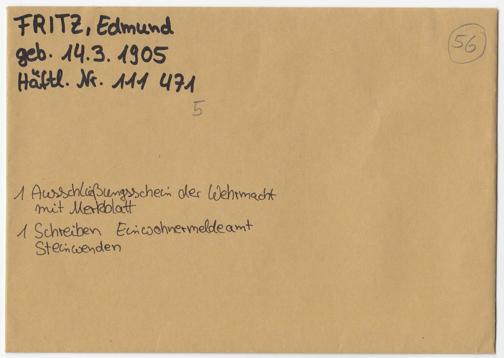 FRITZ, Edmund
geb. 14.3. 1905
Häftl. Nr. 111 471
56
5
1 Ausschließungsschein der Wehrmacht
mit Merkblatt
1 Schreiben Einwohnermeldeamt
Steinwenden